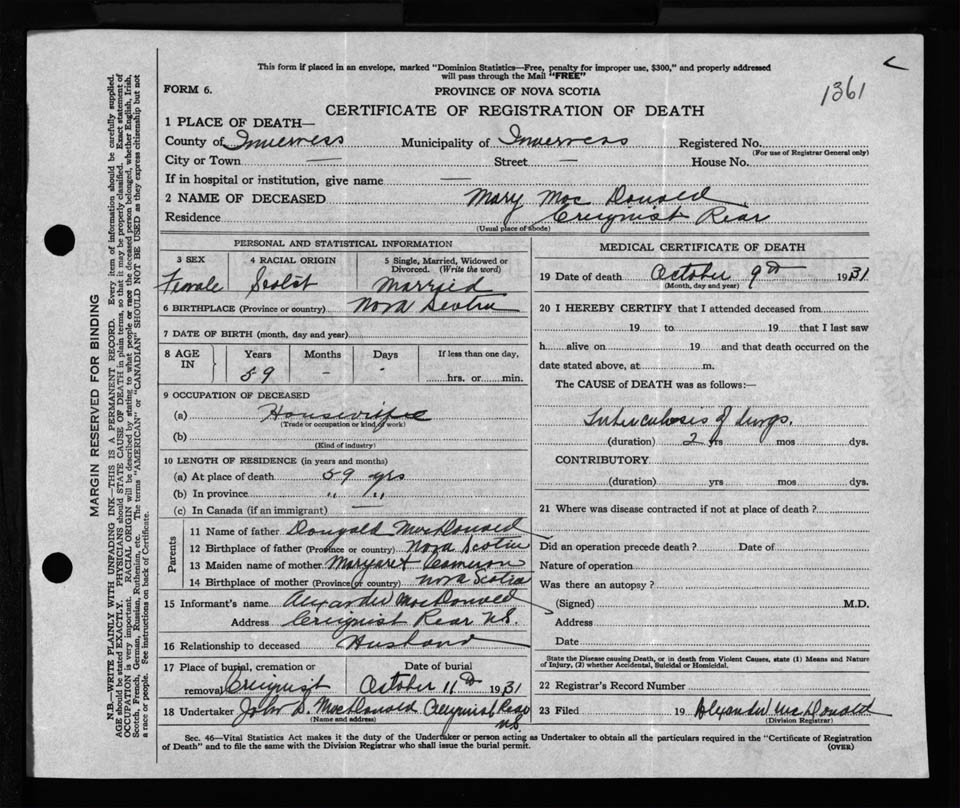 1361
This form if placed in an envelope, marked "Dominion Statistics—Free, penalty for improper use, $300," and properly addressed
will pass through the Mail "FREE"
FORM 6.
PROVINCE OF NOVA SCOTIA
CERTIFICATE OF REGISTRATION OF DEATH
1 PLACE OF DEATH—
County of Inverness Municipality of Inverness Registered No.
(For use of Registrar General only)
City or Town — Street — House No.
If in hospital or institution, give name —
2 NAME OF DECEASED Mary Mac Donald
Residence Creignish Rear
(Usual place of abode)
PERSONAL AND STATISTICAL INFORMATION
3 SEX 4 RACIAL ORIGIN 5 Single, Married, Widowed or
Divorced. (Write the word)
Female Scotch Married
6 BIRTHPLACE (Province or country) Nova Scotia
7 DATE OF BIRTH (month, day and year)
8 AGE IN Years Months Days If less than one day,
59 - - hrs. or min.
9 OCCUPATION OF DECEASED
(a) Housewife
(Trade or occupation or kind of work)
(b)
(Kind of industry)
10 LENGTH OF RESIDENCE (in years and months)
(a) At place of death 59 yrs
(b) In province " "
(c) In Canada (if an immigrant) —
Parents
11 Name of father Dougald MacDonald
12 Birthplace of father (Province or country) Nova Scotia
13 Maiden name of mother Margaret Cameron
14 Birthplace of mother (Province or country) Nova Scotia
15 Informant's name Alexander MacDonald
Address Creignish Rear N.S.
16 Relationship to deceased Husband
17 Place of burial, cremation or Date of burial
removal Creignish October 11th 1931
18 Undertaker John D. MacDonald Creignish Rear
N.S.
(Name and address)
MEDICAL CERTIFICATE OF DEATH
19 Date of death October 9th 1931
(Month, day and year)
20 I HEREBY CERTIFY that I attended deceased from
19 to 19 that I last saw
h alive on 19 and that death occurred on the
date stated above, at m.
The CAUSE of DEATH was as follows:—
Tuberculosis of Lungs.
(duration) 2 yrs mos dys.
CONTRIBUTORY
(duration) yrs mos dys.
21 Where was disease contracted if not at place of death?
Did an operation precede death? Date of
Nature of operation
Was there an autopsy?
(Signed) M.D.
Address
Date
State the Disease causing Death, or in death from Violent Causes, state (1) Means and Nature
of Injury, (2) whether Accidental, Suicidal or Homicidal.
22 Registrar's Record Number
23 Filed 19 Alexander McDonald
(Division Registrar)
Sec. 46—Vital Statistics Act makes it the duty of the Undertaker or person acting as Undertaker to obtain all the particulars required in the "Certificate of Registration
of Death" and to file the same with the Division Registrar who shall issue the burial permit.
(OVER)
MARGIN RESERVED FOR BINDING
N.B.—WRITE PLAINLY WITH UNFADING INK—THIS IS A PERMANENT RECORD. Every item of information should be carefully supplied.
AGE should be stated EXACTLY. PHYSICIANS should STATE CAUSE OF DEATH in plain terms, so that it may be properly classified. Exact statement of
OCCUPATION is very important. RACIAL ORIGIN will be described by stating to what people or race the deceased person belonged, whether English, Irish,
Scotch, French, German, Russian, Ruthenian, etc. The terms "AMERICAN" or "CANADIAN" SHOULD NOT BE USED as they express citizenship but not
a race or people. See instructions on back of Certificate.